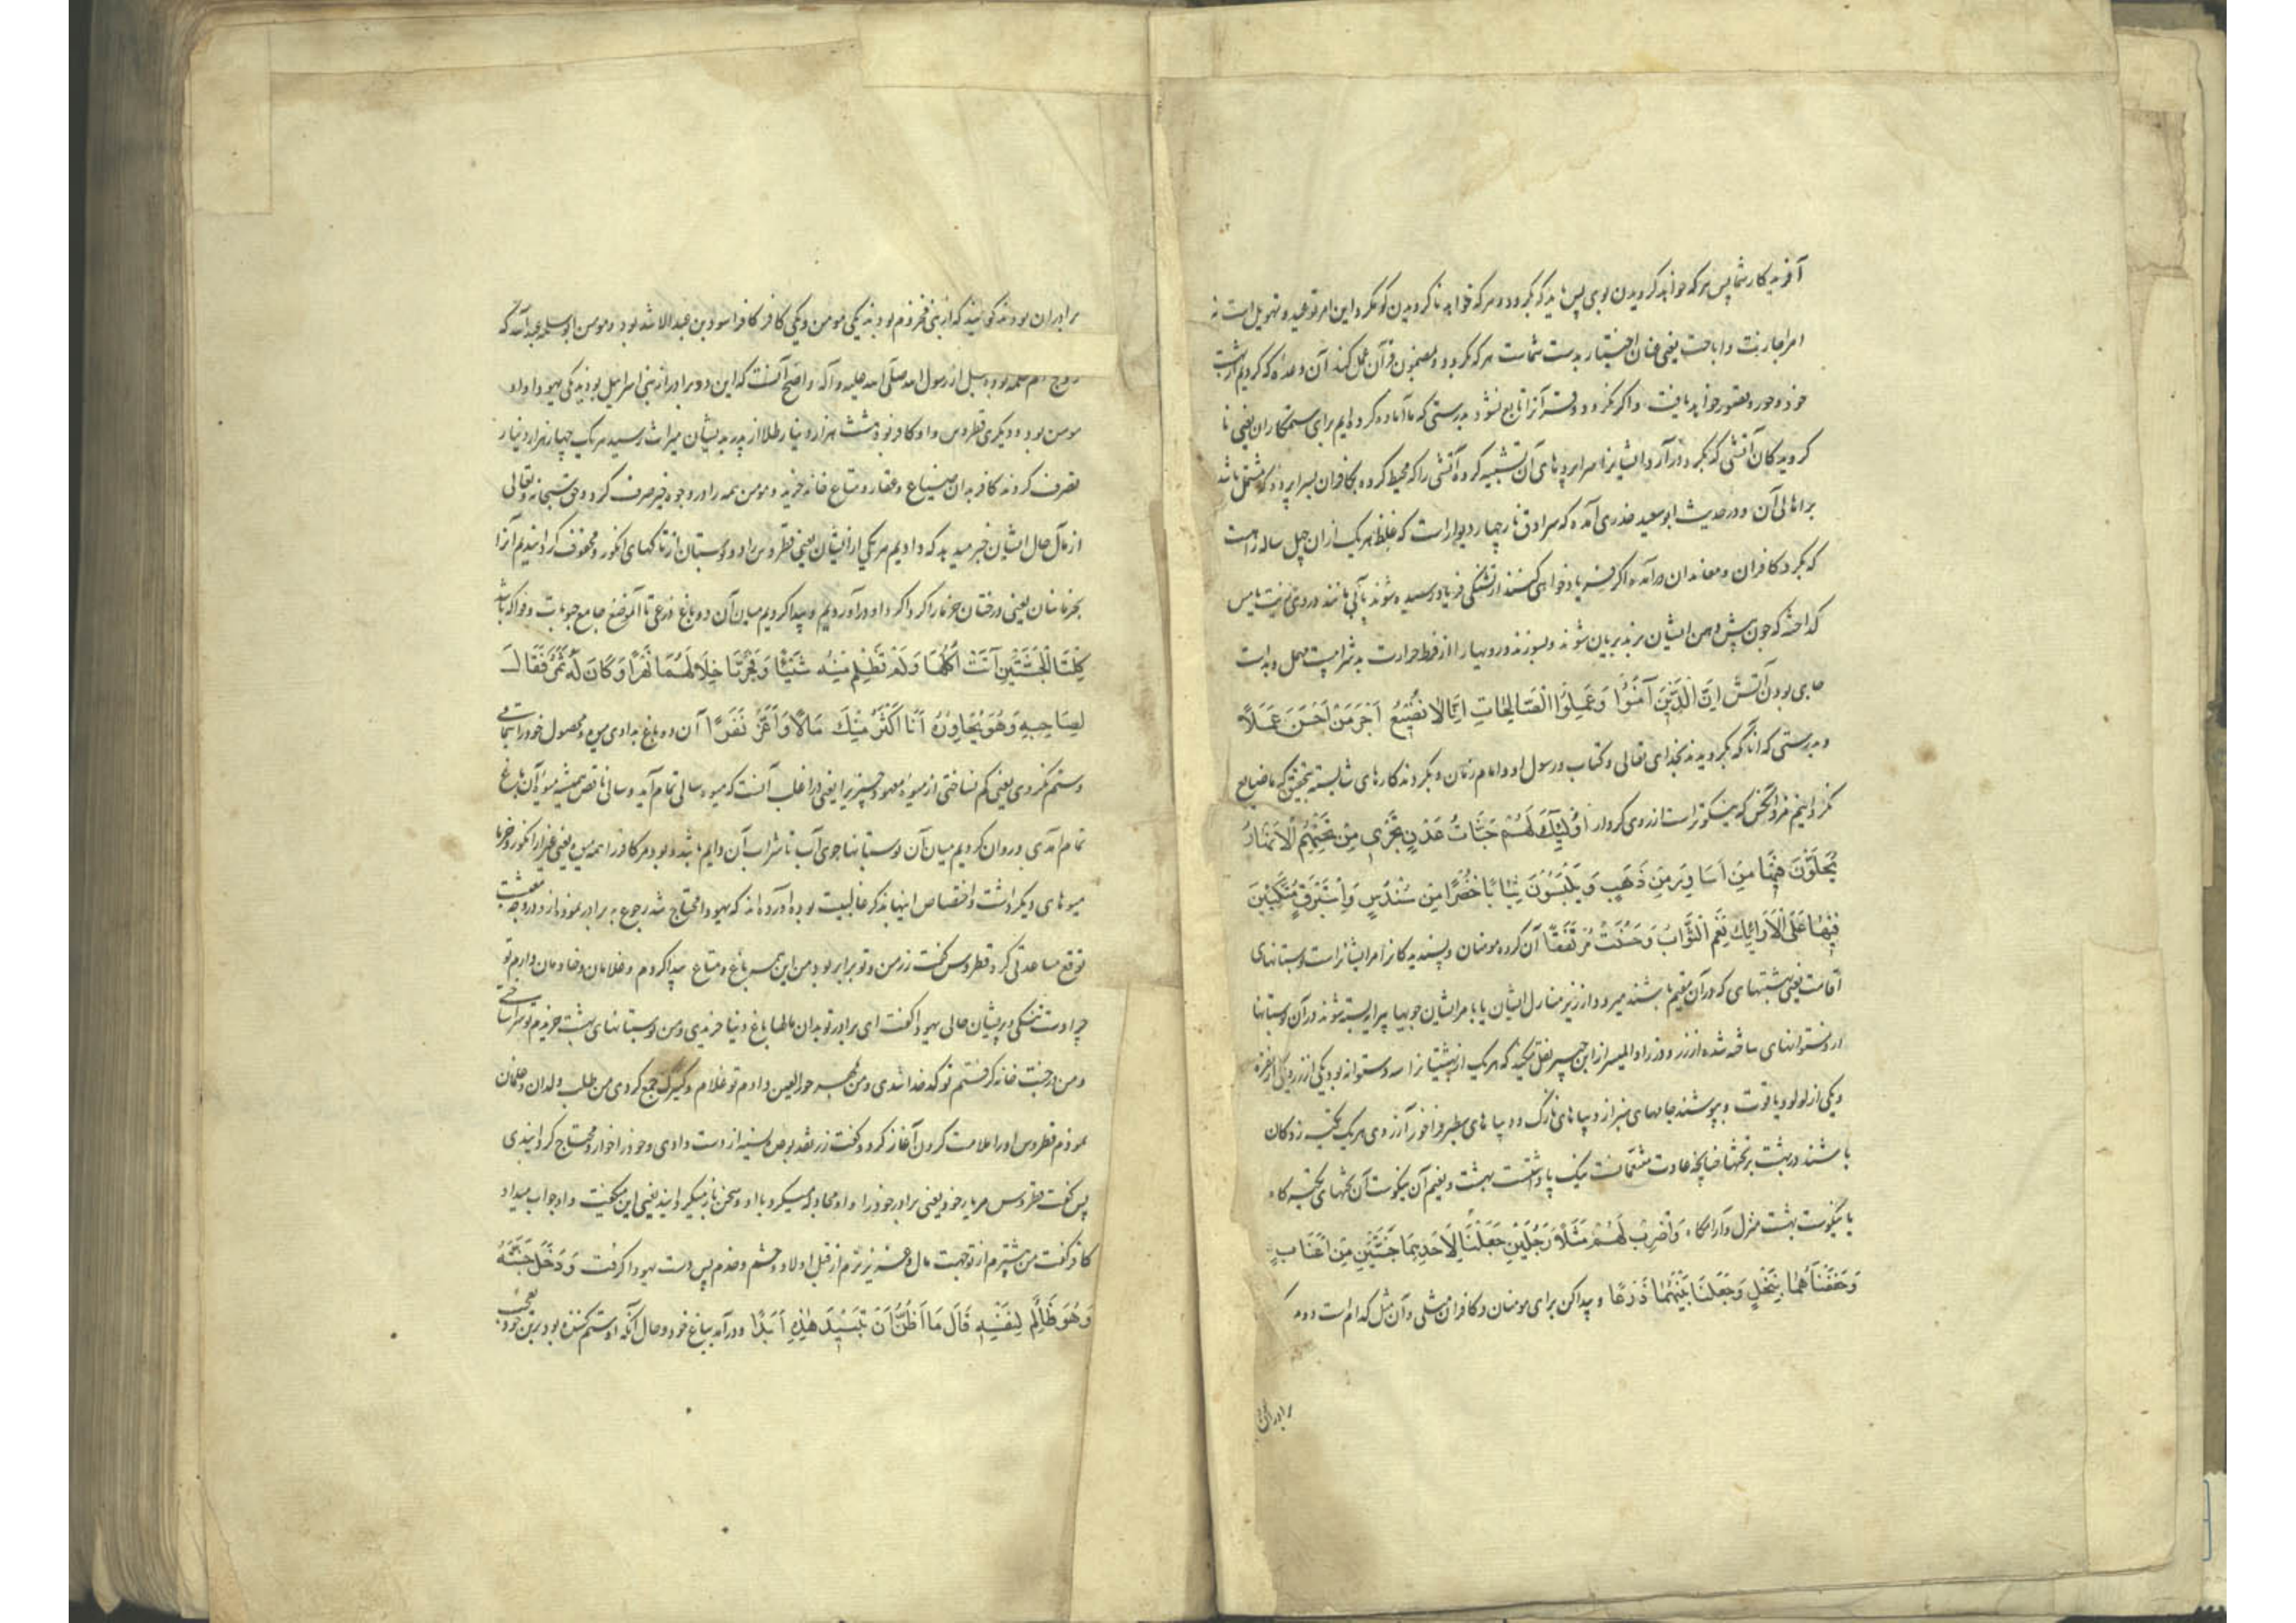 آفریدکار شما پس هر که خواهد کرویدن بوی پس باید که بکرود و هر که خواهد ناکرویدن کو مکرو و این امر توعید و تهویل است نه
امر اجازت و اباحت یعنی عنان اختیار بدست شماست هر که بکرود و بمضمون قرآن عمل کند آن وعده که کردیم از بهشت
خود و حور و قصور خواهد یافت و اکر نکرود و قرآنرا تابع نشود بدرستی که ما آماده کرده ایم برای ستمکاران یعنی نا
کرویدکان آتشی که بکرد درآرد ایشانرا سراپردهای آن تشبیه کرده آتشی را که محیط کرده بکافران بسراپرده که مشتمل باشد
بر اهالی آن و در حدیث ابوسعید خدری آمده که سرادق نار چهار دیوار است که غلظ هر یک از آن چهل ساله راهست
که بکرد کافران و معاندان درآمده و اکر فریاد خواهی کنند از تشنکی فریاد رسیده شوند بآبی مانند دردی زیت یا مس
کداخته که چون پیش دهن ایشان برند بریان شوند و بسوزند رویها را از فرط حرارت بد شرابیست مهل و بداست
جای بودن آتش إِنَّ الَّذِينَ آمَنُوا وَعَمِلُوا الصَّالِحَاتِ إِنَّا لَا نُضِيعُ أَجْرَ مَنْ أَحْسَنَ عَمَلًا
و بدرستی که آنانکه بکرویدند بخدای تعالی و کتاب و رسول او و امام زمان و بکردند کارهای شایسته بتحقیق که ما ضایع
نکردانیم مزد آنکس که نیکوتر است از روی کردار أُولَئِكَ لَهُمْ جَنَّاتُ عَدْنٍ تَجْرِي مِنْ تَحْتِهِمُ الْأَنْهَارُ
يُحَلَّوْنَ فِيهَا مِنْ أَسَاوِرَ مِنْ ذَهَبٍ وَيَلْبَسُونَ ثِيَابًا خُضْرًا مِنْ سُنْدُسٍ وَإِسْتَبْرَقٍ مُتَّكِئِينَ
فِيهَا عَلَى الْأَرَائِكِ نِعْمَ الثَّوَابُ وَحَسُنَتْ مُرْتَفَقًا آن کروه مومنان و پسندیدکانرا مر ایشانراست بوستانهای
اقامت یعنی بهشتهای که در آن مقیم باشند میرود از زیر منازل ایشان یا بامر ایشان جویها پیرایه بسته شوند در آن بوستانها
از دستوانهای ساخته شده از زر و در زاد المسیر از ابن جبیر نقل میکند که هر یک از بهشتیانرا سه دستوانه بود یکی از زر و یکی از نقره
و یکی از لولو و یاقوت و بپوشند جامهای سبز از دیباهای نازک و دیباهای سطبر در آن روی هر یک تکیه زدکان
باشند در بهشت بر تختها چنانچه عادت متنعمانست نیک پاداشتست بهشت و نعیم آن نیکوست آن تختهای تکیه کاه
یا نیکوست بهشت منزل و آرامکاه وَاضْرِبْ لَهُمْ مَثَلًا رَجُلَيْنِ جَعَلْنَا لِأَحَدِهِمَا جَنَّتَيْنِ مِنْ أَعْنَابٍ
وَحَفَفْنَاهُمَا بِنَخْلٍ وَجَعَلْنَا بَيْنَهُمَا زَرْعًا و پیدا کن برای مومنان و کافران مثلی و آن مثل کدام است دو مرد که
برادران
برادران بودند کویند که از بنی مخزوم بودند یکی مومن و یکی کافر کافر اسود بن عبد الاشد بود و مومن ابو سلمه عبد الله که
زوج ام سلمه بوده قبل از رسول الله صلی الله علیه و آله و اصح آنست که این دو برادر از بنی اسرائیل بودند یکی یهودا و او
مومن بود و دیکری قطروس و او کافر بود هشت هزار دینار طلا از پدر بدیشان میراث رسید هر یک چهار هزار دینار
تصرف کردند کافر بدان ضیاع و عقار و متاع خانه خرید و مومن همه را در وجوه خیر صرف کرد و حق سبحانه و تعالی
از مآل حال ایشان خبر میدهد که دادیم مر یکی از ایشان یعنی قطروس را دو بوستان از تاکهای انکور و محفوف کردانیدیم آنرا
بخرمابنان یعنی درختان خرما را کرداکرد او درآوردیم و پیدا کردیم میان آن دو باغ زرعی تا آنموضع جامع حبوبات و فواکه باشد
كِلْتَا الْجَنَّتَيْنِ آتَتْ أُكُلَهَا وَلَمْ تَظْلِمْ مِنْهُ شَيْئًا وَفَجَّرْنَا خِلَالَهُمَا نَهَرًا وَكَانَ لَهُ ثَمَرٌ فَقَالَ
لِصَاحِبِهِ وَهُوَ يُحَاوِرُهُ أَنَا أَكْثَرُ مِنْكَ مَالًا وَأَعَزُّ نَفَرًا آن دو باغ بدادی میوه و محصول خود را بتمامی
و ستم نکردی یعنی کم نساختی از میوه معهود چیزیرا یعنی در اغلب آنست که میوه سالی تمام آید و سالی ناقص همیشه میوه آن باغ
تمام آمدی و روان کردیم میان آن بوستانها جوی آب تا شراب آن دایم باشد و بود مر کافر را همه میوه یعنی غیر از انکور و خرما
میوهای دیکر داشت و اختصاص اینها بذکر غالبیت بوده آورده اند که یهودا محتاج شد رجوع به برادر نموده از و در وجه معیشت
توقع مساعدتی کرد قطروس کفت زر من و تو برابر بود من این همه باغ و متاع پیدا کردم و غلامان و خادمان دارم تو
چرا دست تنکی و پریشان حالی یهودا کفت ای برادر تو بدان طلا باغ دنیا خریدی و من بوستانهای بهشت خریدم تو سرا ساختی
و من در جنت خانه کرفتم تو کدخدا شدی و من مهر حور العین دادم تو غلام و کنیزک جمع کردی من طلب ولدان و غلمان
نمودم قطروس او را ملامت کردن آغاز کرد و کفت زر نقد بوعده نسیه از دست دادی و خود را خوار و محتاج کردانیدی
پس کفت قطروس مر یار خود یعنی برادر خود را و او محاوره میکرد با او و سخن باز میکردانید یعنی این میکفت و او جواب میداد
کافر کفت من بیشترم از تو جهت مال و عزیزترم از قبل اولاد و حشم و خدم پس دست یهودا کرفت وَدَخَلَ جَنَّتَهُ
وَهُوَ ظَالِمٌ لِنَفْسِهِ قَالَ مَا أَظُنُّ أَنْ تَبِيدَ هَذِهِ أَبَدًا و درآمد بباغ خود و حال آنکه او ستم کننده بود بر تن خود